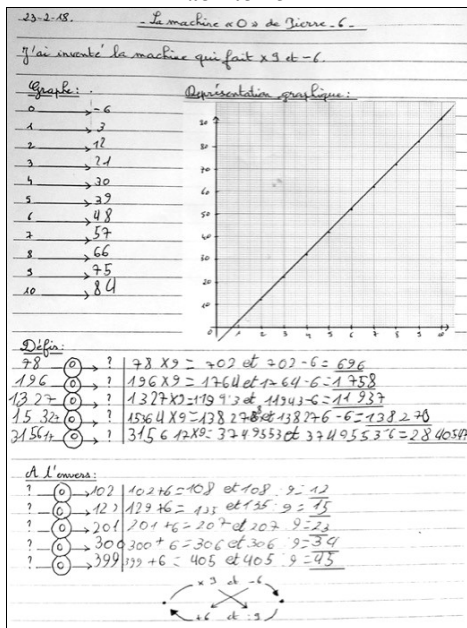 23-2-18. - La machine «O» de Pierre -6-
J'ai inventé la machine qui fait x9 et -6.
Graphe :
Représentation graphique :
0 → -6
1 → 3
2 → 12
3 → 21
4 → 30
5 → 39
6 → 48
7 → 57
8 → 66
9 → 75
10 → 84
90
80
70
60
50
40
30
20
10
0 1 2 3 4 5 6 7 8 9 10
Défis :
78 O → ? 78 x9 = 702 et 702-6= 696
196 O → ? 196 x9 = 1764 et 1764-6= 1 758
1327 O → ? 1327x9=11943 et 11943-6= 11 937
15 327 O → ? 15364 x9=138276 et 138276 -6=138270
315617 O → ? 315617x9= 3749553 et 3749553-6=
A l'envers :
? O → 102 102+6=108 et 108 : 9= 12
? O → 129 129+6= 135 et 135 : 9= 15
? O → 201 201+6= 207 et 207 : 9=23
? O → 300 300+6=306 et 306 : 9=34
? O → 399 399+6= 405 et 405 : 9=45
x9 et -6
+6 et :9